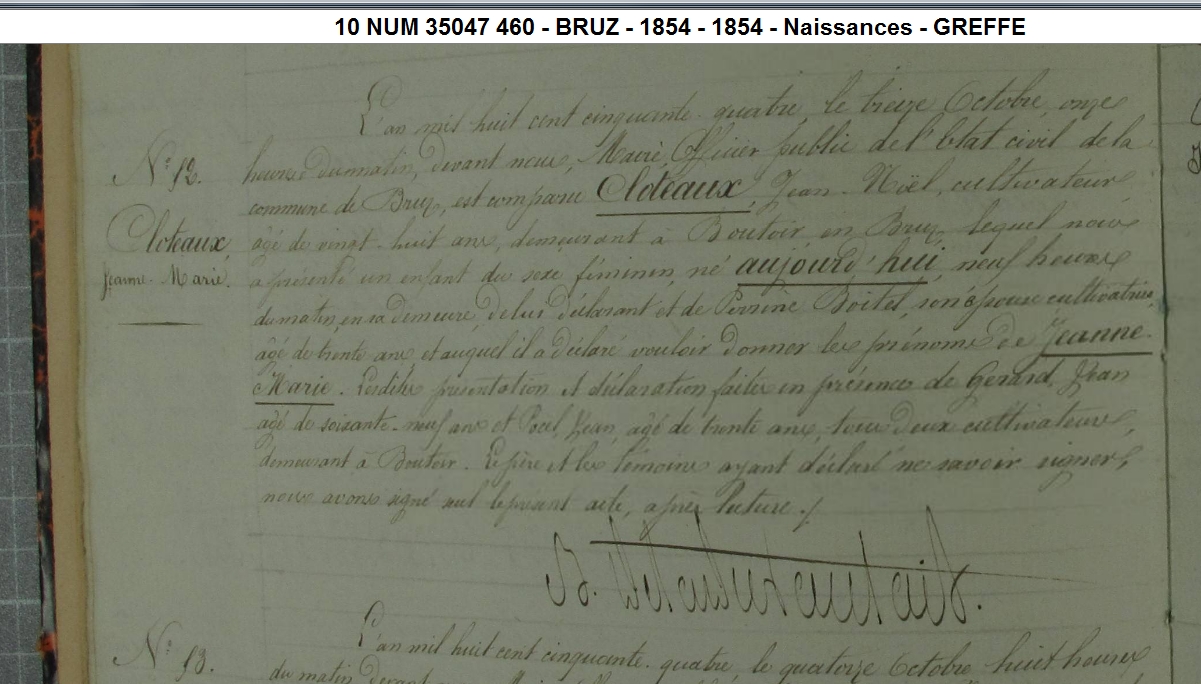 10 NUM 35047 460 - BRUZ - 1854 - 1854 - Naissances - GREFFE
N° 12.
Cloteaux,
Jeanne-Marie.
L'an mil huit cent cinquante-quatre, le treize Octobre, onze
heures du matin, devant nous, Maire, Officier public de l'état civil de la
commune de Bruz, est comparu Cloteaux, Jean-Noël, cultivateur
âgé de vingt-huit ans, demeurant à Boutoir, en Bruz, lequel nous
a présenté un enfant du sexe féminin, né aujourd'hui, neuf heures
du matin, en sa demeure, de lui déclarant et de Perrine Boitel, son épouse, cultivatrice
âgé de trente ans et auquel il a déclaré vouloir donner les prénoms de Jeanne-
Marie. Lesdites présentation et déclaration faites en présence de Gérard, Jean
âgé de soixante-neuf ans et Jean, âgé de trente ans, tous deux cultivateurs,
demeurant à Boutoir. Le père et les témoins ayant déclaré ne savoir signer,
nous avons signé seul le présent acte, après lecture ./.
N° 13.
L'an mil huit cent cinquante-quatre, le quatorze Octobre, huit heures
du matin, devant